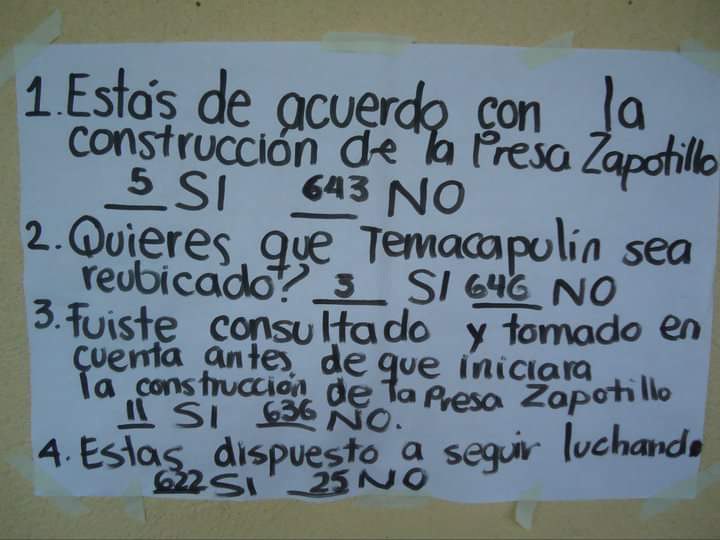 1. Estás de acuerdo con la
construcción de la Presa Zapotillo
5 SI 643 NO
2. Quieres que Temacapulín sea
reubicado? 3 SI 646 NO
3. Fuiste consultado y tomado en
cuenta antes de que iniciara
la construcción de la Presa Zapotillo
11 SI 636 NO.
4. Estas dispuesto a seguir luchando
622 SI 25 NO